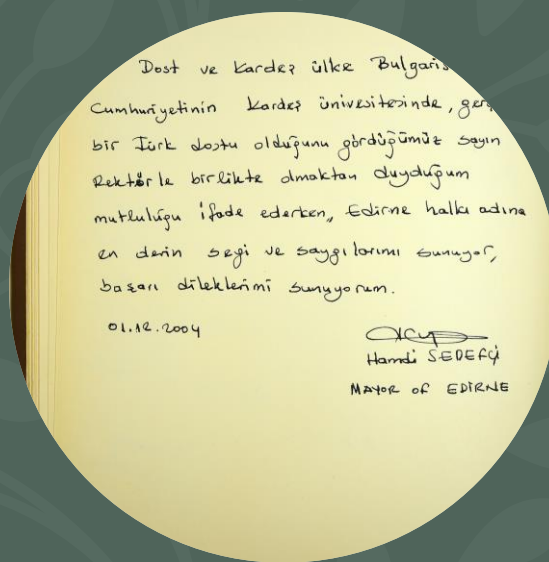 Dost ve Kardeş ülke Bulgaris
Cumhuriyetinin Kardeş ünivesitesinde,
bir Türk dostu olduğunu gördüğümüz sayın
Rektörle birlikte olmaktan duyduğum
mutluluğu ifade ederken, Edirne halkı adına
en derin segi ve saygılarımı sunuyor,
başarı dileklerimi sunuyorum.
01.12.2004
Hamdi SEDEFÇİ
MAYOR OF EDİRNE